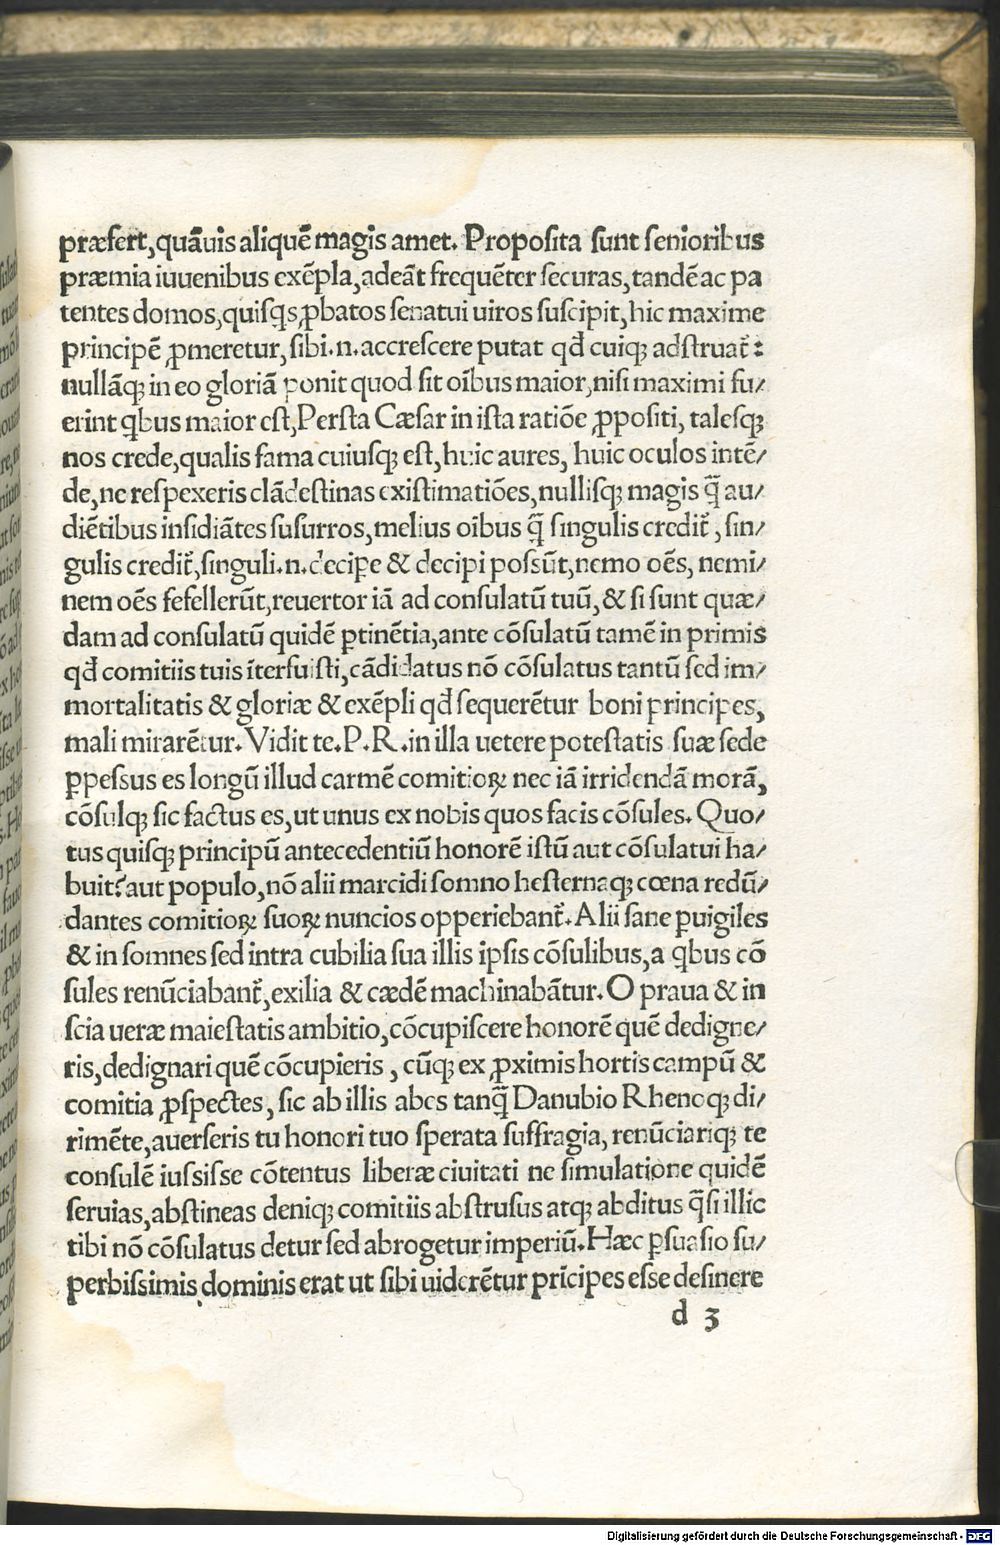 præfert,quãuis aliquẽ magis amet. Proposita sunt senioribus
præmia iuuenibus exẽpla,adeãt frequẽter securas,tandẽ ac pa
tentes domos,quisq̃s ꝓbatos senatui uiros suscipit,hic maxime
principẽ ꝓmeretur,sibi.n.accrescere putat qđ cuiqꝫ adstruat᷑:
nullãqꝫ in eo gloriã ponit quod sit oĩbus maior,nisi maximi fu/
erint q̃bus maior est,Persta Cæsar in ista ratiõe ꝓpositi, talesqꝫ
nos crede,qualis fama cuiusqꝫ est,huic aures, huic oculos intẽ/
de,ne respexeris clãdestinas existimatiões,nullisqꝫ magis q̃ au/
diẽtibus insidiãtes susurros,melius oĩbus q̃ singulis credit᷑, sin/
gulis credit᷑,singuli.n.decipe & decipi possũt,nemo oẽs, nemi/
nem oẽs fefellerũt,reuertor iã ad consulatũ tuũ,& si sunt quæ/
dam ad consulatũ quidẽ ꝑtinẽtia,ante cõsulatũ tamẽ in primis
qđ comitiis tuis ĩterfuisti,cãdidatus nõ cõsulatus tantũ sed im/
mortalitatis & gloriæ & exẽpli qđ sequerẽtur boni principes,
mali mirarẽtur. Vidit te.P.R.in illa uetere potestatis suæ sede
ꝑpessus es longũ illud carmẽ comitioꝝ nec iã irridendã morã,
cõsulqꝫ sic factus es,ut unus ex nobis quos facis cõsules. Quo/
tus quisqꝫ principũ antecedentiũ honorẽ istũ aut cõsulatui ha/
buit?aut populo,nõ alii marcidi somno hesternaqꝫ cœna redũ/
dantes comitioꝝ suoꝝ nuncios opperiebant᷑. Alii sane ꝑuigiles
& in somnes sed intra cubilia sua illis ipsis cõsulibus,a q̃bus cõ
sules renũciabant᷑,exilia & cædẽ machinabãtur. O praua & in
scia ueræ maiestatis ambitio,cõcupiscere honorẽ quẽ dedigne/
ris,dedignari quẽ cõcupieris, cũqꝫ ex ꝓximis hortis campũ &
comitia ꝓspectes, sic ab illis abes tanq̃ Danubio Rhenoqꝫ di/
rimẽte,auerseris tu honori tuo sperata suffragia, renũciariqꝫ te
consulẽ iussisse cõtentus liberæ ciuitati ne simulatione quidẽ
seruias,abstineas deniqꝫ comitiis abstrusus atqꝫ abditus q̃si illic
tibi nõ cõsulatus detur sed abrogetur imperiũ. Hæc ꝑsuasio su/
perbissimis dominis erat ut sibi uiderẽtur prĩcipes esse desinere
d 3
Digitalisierung gefördert durch die Deutsche Forschungsgemeinschaft - DFG